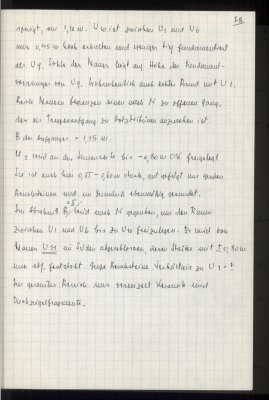 28
springt, um 1,10 m. U10 ist zwischen U1 und U6
nur 0,45 m hoch erhalten und weniger tief fundamentiert
als U9. Sohle der Mauer liegt auf Höhe der Fundament-
vorsprünge von U9. Wahrscheinlich auch selber Bund mit U1.
Beide Mauern begrenzen einen nach N zu offenen Gang,
der als Treppenaufgang zu Holz anzusehen ist.
B des Aufganges = 1,15 m.
U1 wird an der Innenseite bis -0,80 m OK freigelegt.
Sie ist auch hier 0,55 - 0,60 m stark, gut gefügt aus großen
Bruchsteinen und im Innern
Im Abschnitt B wird nach N gegraben, um den Raum
zwischen U1 und U6 bis zu U10 freizulegen. Er wird von
Mauer U11 im Süden abgeschlossen, deren Stärke mit ± 0,80 m
nur
Bruchsteine. Verhältnis zu U1 = ?
Im gesamten Bereich nur vereinzelt Keramik und
Dachziegelfragmente.